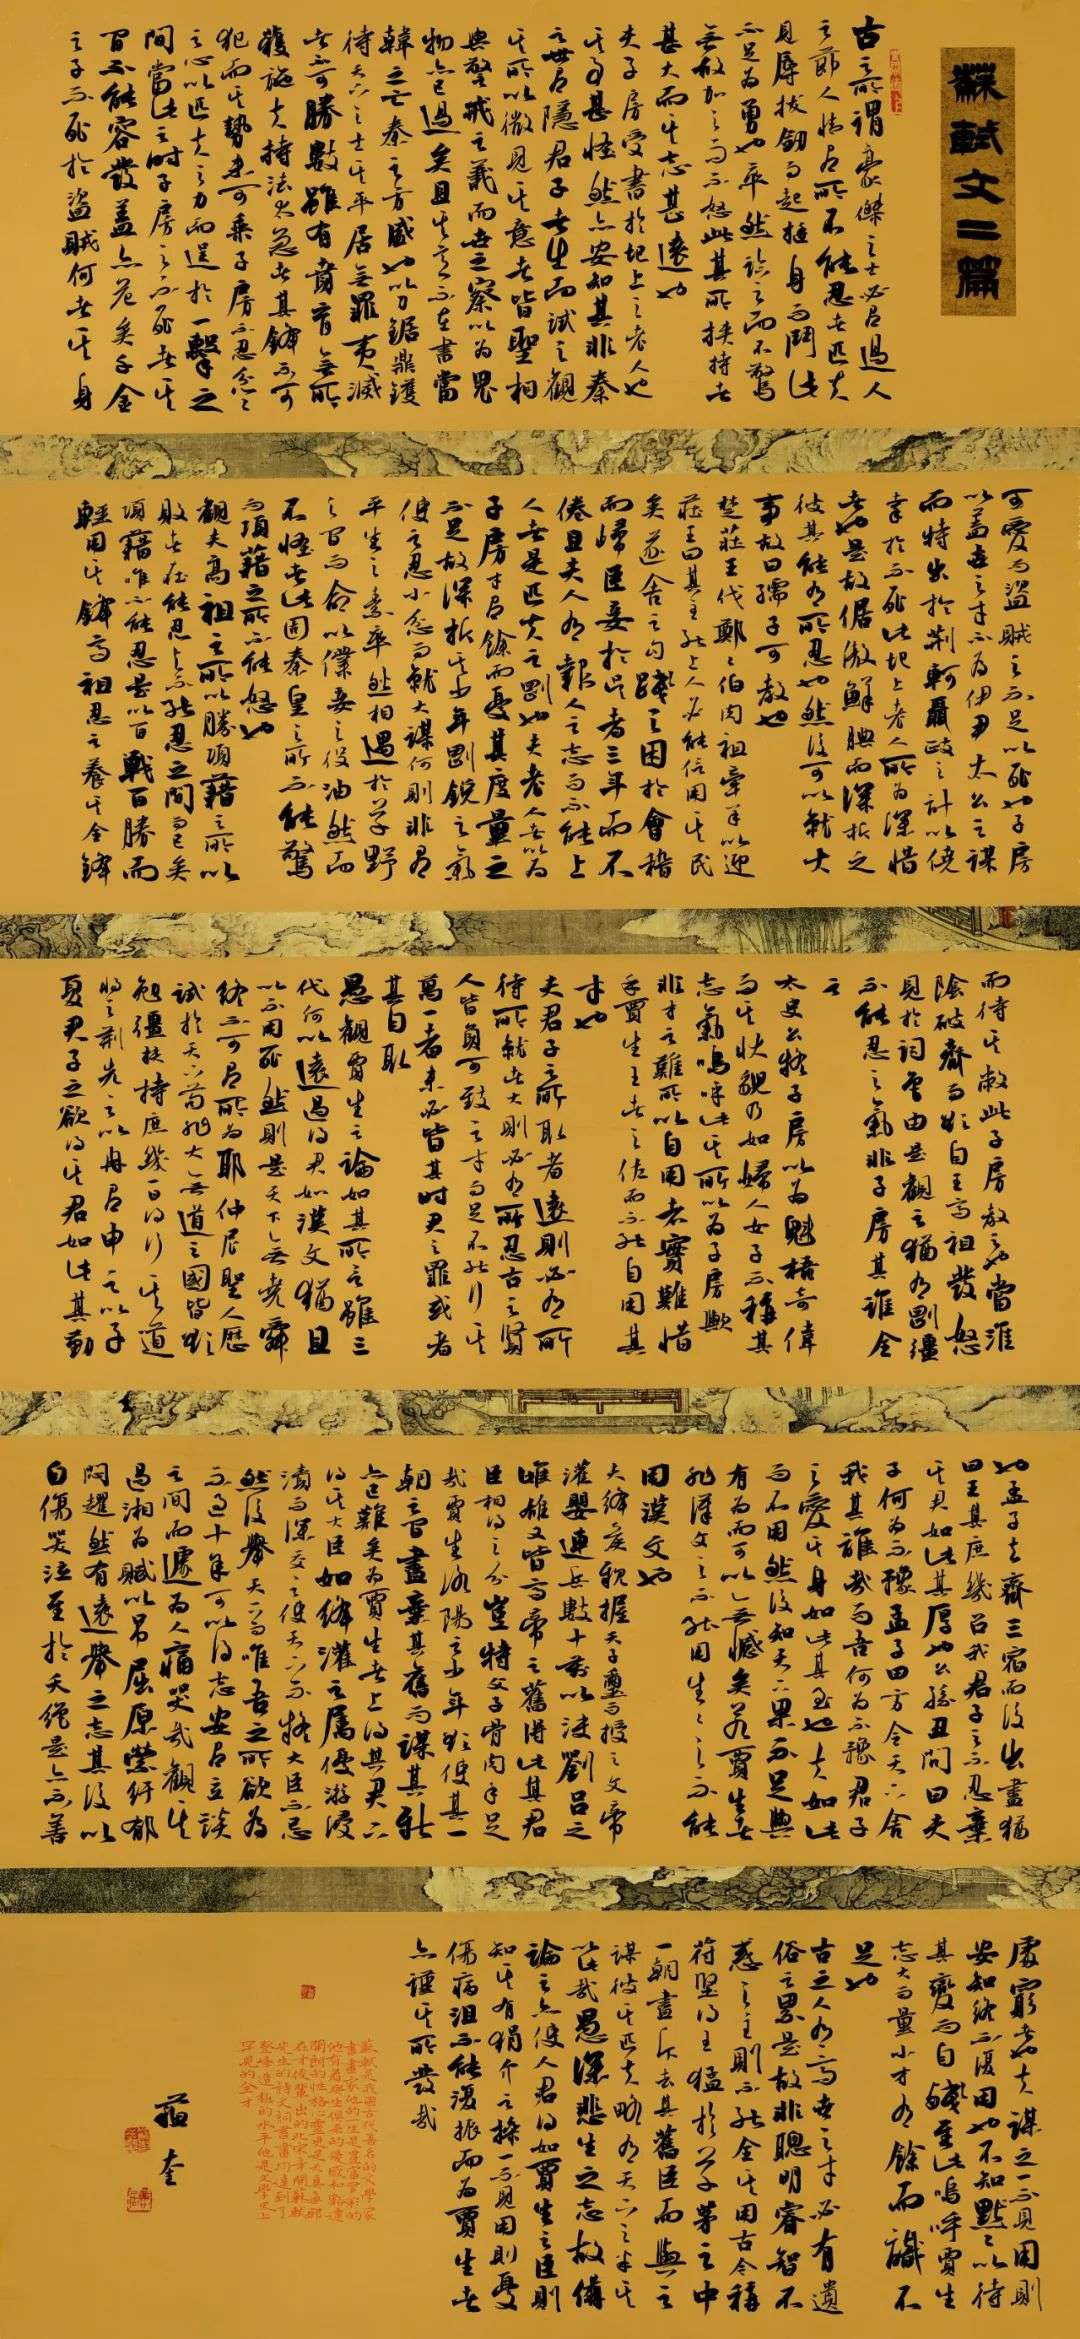 蘇軾文二篇
古之所謂豪傑之士必有過人
之節人情有所不能忍者匹夫
見辱拔劍而起挺身而鬥此
不足為勇也卒然臨之而不驚
無故加之而不怒此其所挾持者
甚大而其志甚遠也
夫子房受書於圯上之老人也
其事甚怪然亦安知其非秦
之世有隱君子者出而試之觀
其所以微見其意者皆聖相
與警戒之義而世不察以為鬼
物亦已過矣且其意不在書當
韓之亡秦之方盛也以刀鋸鼎鑊
待天下之士其平居無罪夷滅
者不可勝數雖有賁育無所
獲施夫持法太急者其鋒不可
犯而其勢未可乘子房不忍忿忿
之心以匹夫之力而逞於一擊之
間當此之時子房之不死者其
間不能容髮蓋亦危矣千金
之子不死於盜賊何者其身
可愛而盜賊之不足以死也子房
以蓋世之才不為伊尹太公之謀
而特出於荊軻聶政之計以僥
幸於不死此圯上老人所為深惜
者也是故倨傲鮮腆而深折之
彼其能有所忍也然後可以就大
事故曰孺子可教也
楚莊王伐鄭鄭伯肉袒牽羊以迎
莊王曰其主能下人必能信用其民
矣遂舍之勾踐之困於會稽
而歸臣妾於吳者三年而不
倦且夫人有報人之志而不能下
人者是匹夫之剛也夫老人者以為
子房才有餘而憂其度量之
不足故深折其少年剛銳之氣
使之忍小忿而就大謀何則非有
平生之素卒然相遇於草野
之間而命以僕妾之役油然而
不怪者此固秦皇之所不能驚
而項籍之所不能怒也
觀夫高祖之所以勝項籍之所以
敗者在能忍與不能忍之間而已矣
項籍唯不能忍是以百戰百勝而
輕用其鋒高祖忍之養其全鋒
而待其敝此子房教之也當淮
陰破齊而欲自王高祖發怒
見於詞色由是觀之猶有剛彊
不能忍之氣非子房其誰全
之
太史公疑子房以為魁梧奇偉
而其狀貌乃如婦人女子不稱其
志氣嗚呼此其所以為子房歟
非才之難所以自用者實難惜
乎賈生王者之佐而不能自用其
才也
夫君子之所取者遠則必有所
待所就者大則必有所忍古之賢
人皆負可致之才而卒不能行其
萬一者未必皆其時君之罪或者
其自取
愚觀賈生之論如其所言雖三
代何以遠過得君如漢文猶且
以不用死然則是天下無堯舜
終不可有所為耶仲尼聖人歷
試於天下苟非大無道之國皆欲
勉彊扶持庶幾一日得行其道
將之荊先之以冉有申之以子
夏君子之欲得其君如此其勤
也孟子去齊三宿而後出晝猶
曰王其庶幾召我君子之不忍棄
其君如此其厚也公孫丑問曰夫
子何為不豫孟子曰方今天下舍
我其誰哉而吾何為不豫君子
之愛其身如此其至也夫如此
而不用然後知天下果不足與
有為而可以無憾矣若賈生者
非漢文之不能用生生之不能
用漢文也
夫絳侯親握天子璽而授之文帝
灌嬰連兵數十萬以決劉呂之
雌雄又皆高帝之舊將此其君
臣相得之分豈特父子骨肉手足
哉賈生洛陽之少年欲使其一
朝之間盡棄其舊而謀其新
亦已難矣為賈生者上得其君下
得其大臣如絳灌之屬優游浸
漬而深交之使天子不疑大臣不忌
然後舉天下而唯吾之所欲為
不過十年可以得志安有立談
之間而遽為人痛哭哉觀其
過湘為賦以弔屈原縈紆郁
悶趯然有遠舉之志其後以
自傷哭泣至於夭絕是亦不善
處窮者也夫謀之一不見用則
安知終不復用也不知默默以待
其變而自殘至此嗚呼賈生
志大而量小才有餘而識不
足也
古之人有高世之才必有遺
俗之累是故非聰明睿智不
惑之主則不能全其用古今稱
苻堅得王猛於草茅之中
一朝盡斥去其舊臣而與之
謀彼其匹夫略有天下之半其
以此哉愚深悲生之志故備
論之亦使人君得如賈生之臣則
知其有狷介之操一不見用則憂
傷病沮不能復振而為賈生者
亦謹其所發哉
蘇軾是我國古代著名的文學家
書畫家他的一生是豐富多彩的
他有着與生俱來的靈感和豁達
開朗的性格
在才俊輩出的北宋年間蘇軾
先生的詩文詞書畫均達到了
登峰造極的水平他是文學史上
罕見的全才
蘊奎